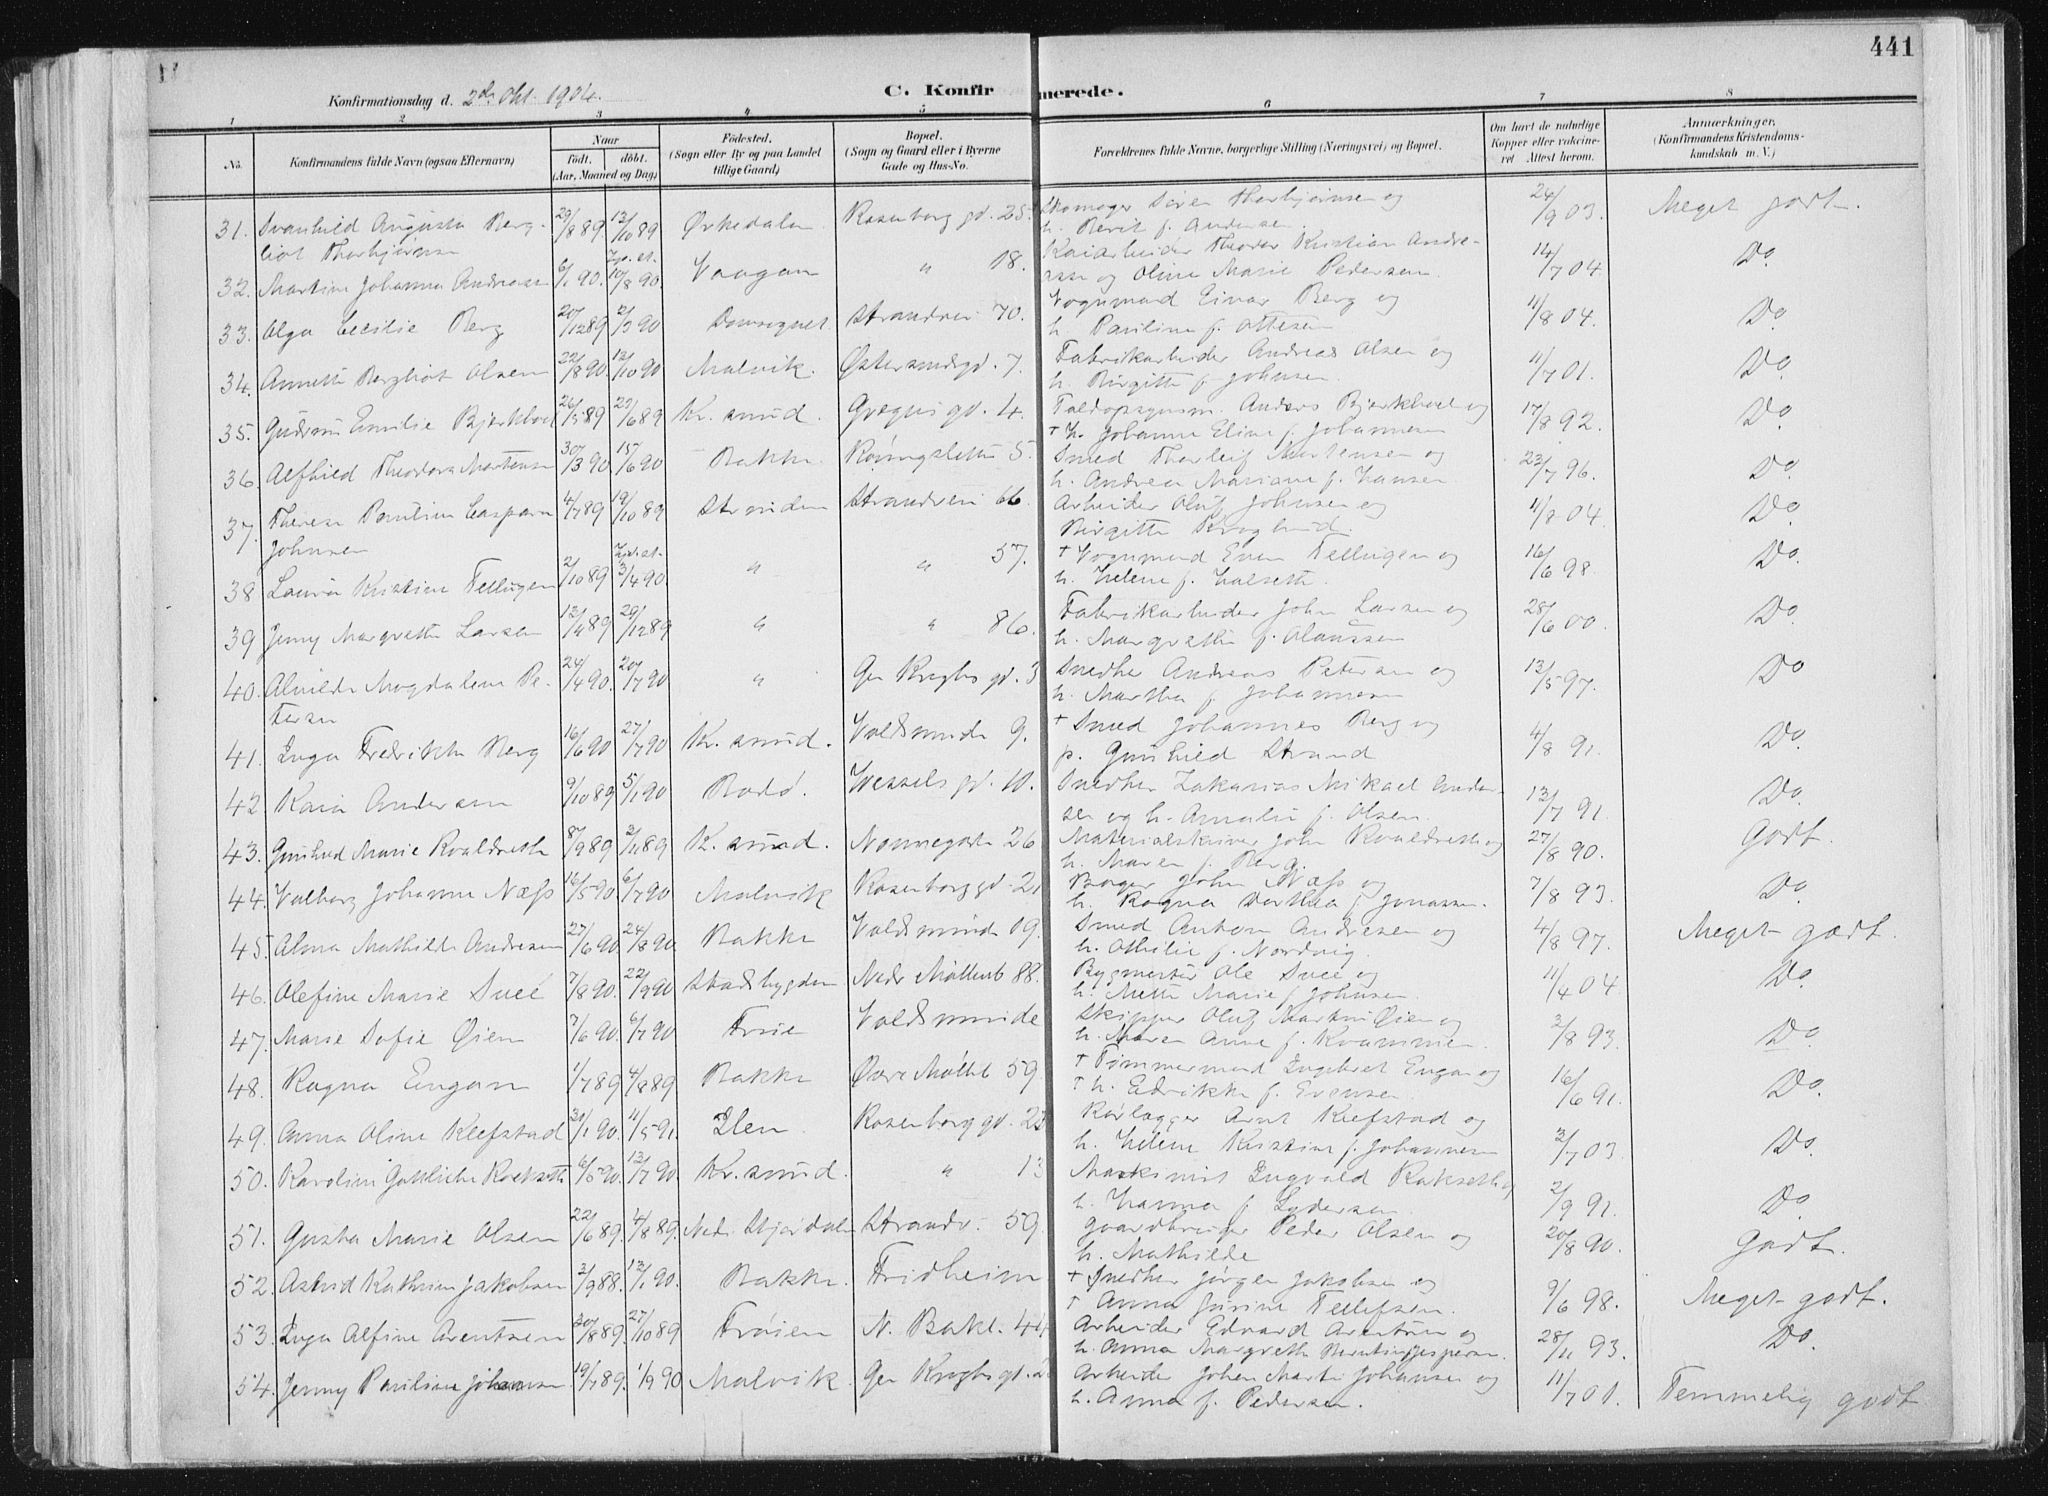 441
Konfirmationsdag d. 2den Okt. 1904.
C. Konfirmerede.
1 2 3 4 5 6 7 8
No.
Konfirmandens fulde Navn (ogsaa Efternavn)
Naar
født. døbt.
(Aar, Maaned og Dag)
Fødested.
(Sogn eller By og paa Landet
tillige Gaard)
Bopæl.
(Sogn og Gaard eller i Byerne
Gade og Hus-No.
Forældrenes fulde Navne, borgerlige Stilling (Næringsvei) og Bopæl.
Om havt de naturlige
Kopper eller vakcine-
ret Attest herom.
Anmærkninger.
(Konfirmandens Kristendoms-
kundskab m. V.)
31. Svanhild Augusta Berg- 29/8 89 13/10 89 Ørkedalen Rosenborg gd. 25. Skomager Sören Thorbjörnsen og 24/9 03. Meget godt.
liot Thorbjörnsen h. Berit f. Andersen.
32. Martine Johanna Andreassen 6/1 90. 10/8 90. Vaagan " 18. Kaiarbeider Theodor Kristian Andre- 14/7 04. Do
asse og Oline Marie Pedersen.
33. Olga Cecilie Berg 20/12 89 2/3 90 Domsognet Strandvei 70. Vognmand Einar Berg og 11/8 04. Do
h. Pauline f. Ottesen
34. Annette Bergliot Olsen 22/8 90. 12/10 90 Malvik. Östersundsgd. 7. Fabrikarbeider Andreas Olsen og 11/7 01. Do
h. Birgitte f. Johnsen.
35. Gudrun Emilie Bjerkhoel 26/5 89 23/6 89 Kr. sund. Gregus gd. 4. Toldopsynsm. Anders Bjerkhoel og 17/8 92. Do
+ h. Johanne Eline f. Johannesen
36. Alfhild Theodora Mortensen 30/3 90 15/6 90 Bakke. Rönningsletten 5. Smed Thorleif Mortensen og 23/7 96. Do
h. Andrea Mariane f. Hansen.
37. Therese Pauline Caspara 4/7 89 19/10 89 Strinden Strandvei 66. Arbeider Oluf Johnsen og 11/8 04. Do
Johnsen Birgitte Kroglund.
38 Laura Kristine Tellugen 2/10 89 3/4 90 " " 57. + Vognmand Even Tellugen og 16/6 98. Do
h. Helene f. Halseth.
39 Jenny Margrethe Larsen 13/9 89 29/12 89 " " 86. Fabrikarbeider John Larsen og 28/6 00. Do
h. Margrethe f. Olaussen
40. Alvilde Magdalene Pe- 24/4 90. 20/7 90 " Ger Kroghs gd. 3 Snedker Andreas Petersen og 13/5 97. Do
tersen h. Martha f. Johannesen
41. Inga Fredrikke Berg 16/6 90 27/7 90 Kr. sund. Voldsminde 9. + Smed Johannes Berg og 4/8 91. Do
p. Gunhild Strand
42 Kaia Andersen 9/10 89 5/1 90 Bodö. Wessels gd. 10. Snedker Zakarias Mikael Ander- 13/7 91. Do
sen og h. Amalie f. Olsen.
43. Gunhild Marie Roaldseth 8/9 89 3/11 89 K. sund. Nonnegaten 26 Materialskriver John Roaldseth og 27/8 90. Godt.
h. Maren f. Berg.
44. Valborg Johanne Næss 16/5 90. 6/7 90 Malvik Rosenborg gd. 21 Bager John Næss og 7/8 93. Do
h. Ragna Dorthea f. Jonassen.
45. Alma Mathilde Andresen 27/6 90. 24/8 90. Bakke Voldsminde 19. Smed Anton Andresen og 4/8 97. Meget godt.
h. Othilie f. Nordvig.
46. Olefine Marie Sveé 7/8 90. 22/9 90 Stadsbygden Nedr Möllenb 88. Bygmester Ole Sveé og 11/4 04. Do
h. Mette Marie f. Johnsen.
47. Marie Sofie Øien 7/6 90. 6/7 90 Fröie Voldsminde Skipper Oluf Martin Øien og 3/8 93. Do
h. Maren Anne f. Kvammen.
48. Ragna Engan 1/7 89 4/8 89 Bakke Øvre Möllb 59. + Tömmermand Ingebret Engan og 16/6 91. Do
+ h. Edrikke f. Evensen.
49. Anna Oline Klefstad 31/1 90. 11/5 91. Ilen. Rosenborg gd. 23 Rörlægger Arnt Klefstad og 3/7 03. Do
h. Helene Kristine f. Johannesen
50. Karoline Gottliebe Rakseth 6/5 90. 13/7 90. Kr. sund. " 13 Maskinist Ingvald Rakseth og 2/9 91. Do
h. Hanna f. Lydersen.
51. Gusta Marie Olsen 22/6 89. 4/8 89. Ned. Stjördalen Strandv. 59. Gaardbruger Peder Olsen og 20/8 90. Godt.
h. Mathilde
52. Astrid Kathrine Jakobsen 3/9 88. 12/1 90. Bakke. Fridheim + Snedker Jörgen Jakobsen og 9/6 98. Meget godt.
+ Anna Jörine Tellefsen.
53. Inga Alfine Arentsen 30/8 89. 27/10 89 Fröien N. Bakl. 44 Arbeider Edvard Arentsen og 28/11 93. Do
h. Anna Margrethe Berntine Jespersen.
54. Jenny Pauline Johansen 19/7 89. 1/9 90 Malvik Ger Kroghs gd. 2 Arbeider Johan Martin Johansen og 11/7 01. Temmelig godt
h. Anna f. Pedersen.